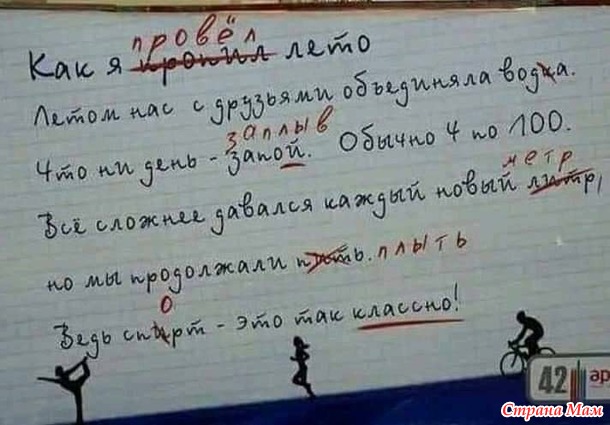 провёл
Как я пропил лето
Летом нас с друзьями объединяла водка.
заплыв
Что ни день - запой. Обычно 4 по 100.
метр
Всё сложнее давался каждый новый литр,
но мы продолжали пить. плыть
о
Ведь спирт - это так классно!
42 ар
Страна Мам